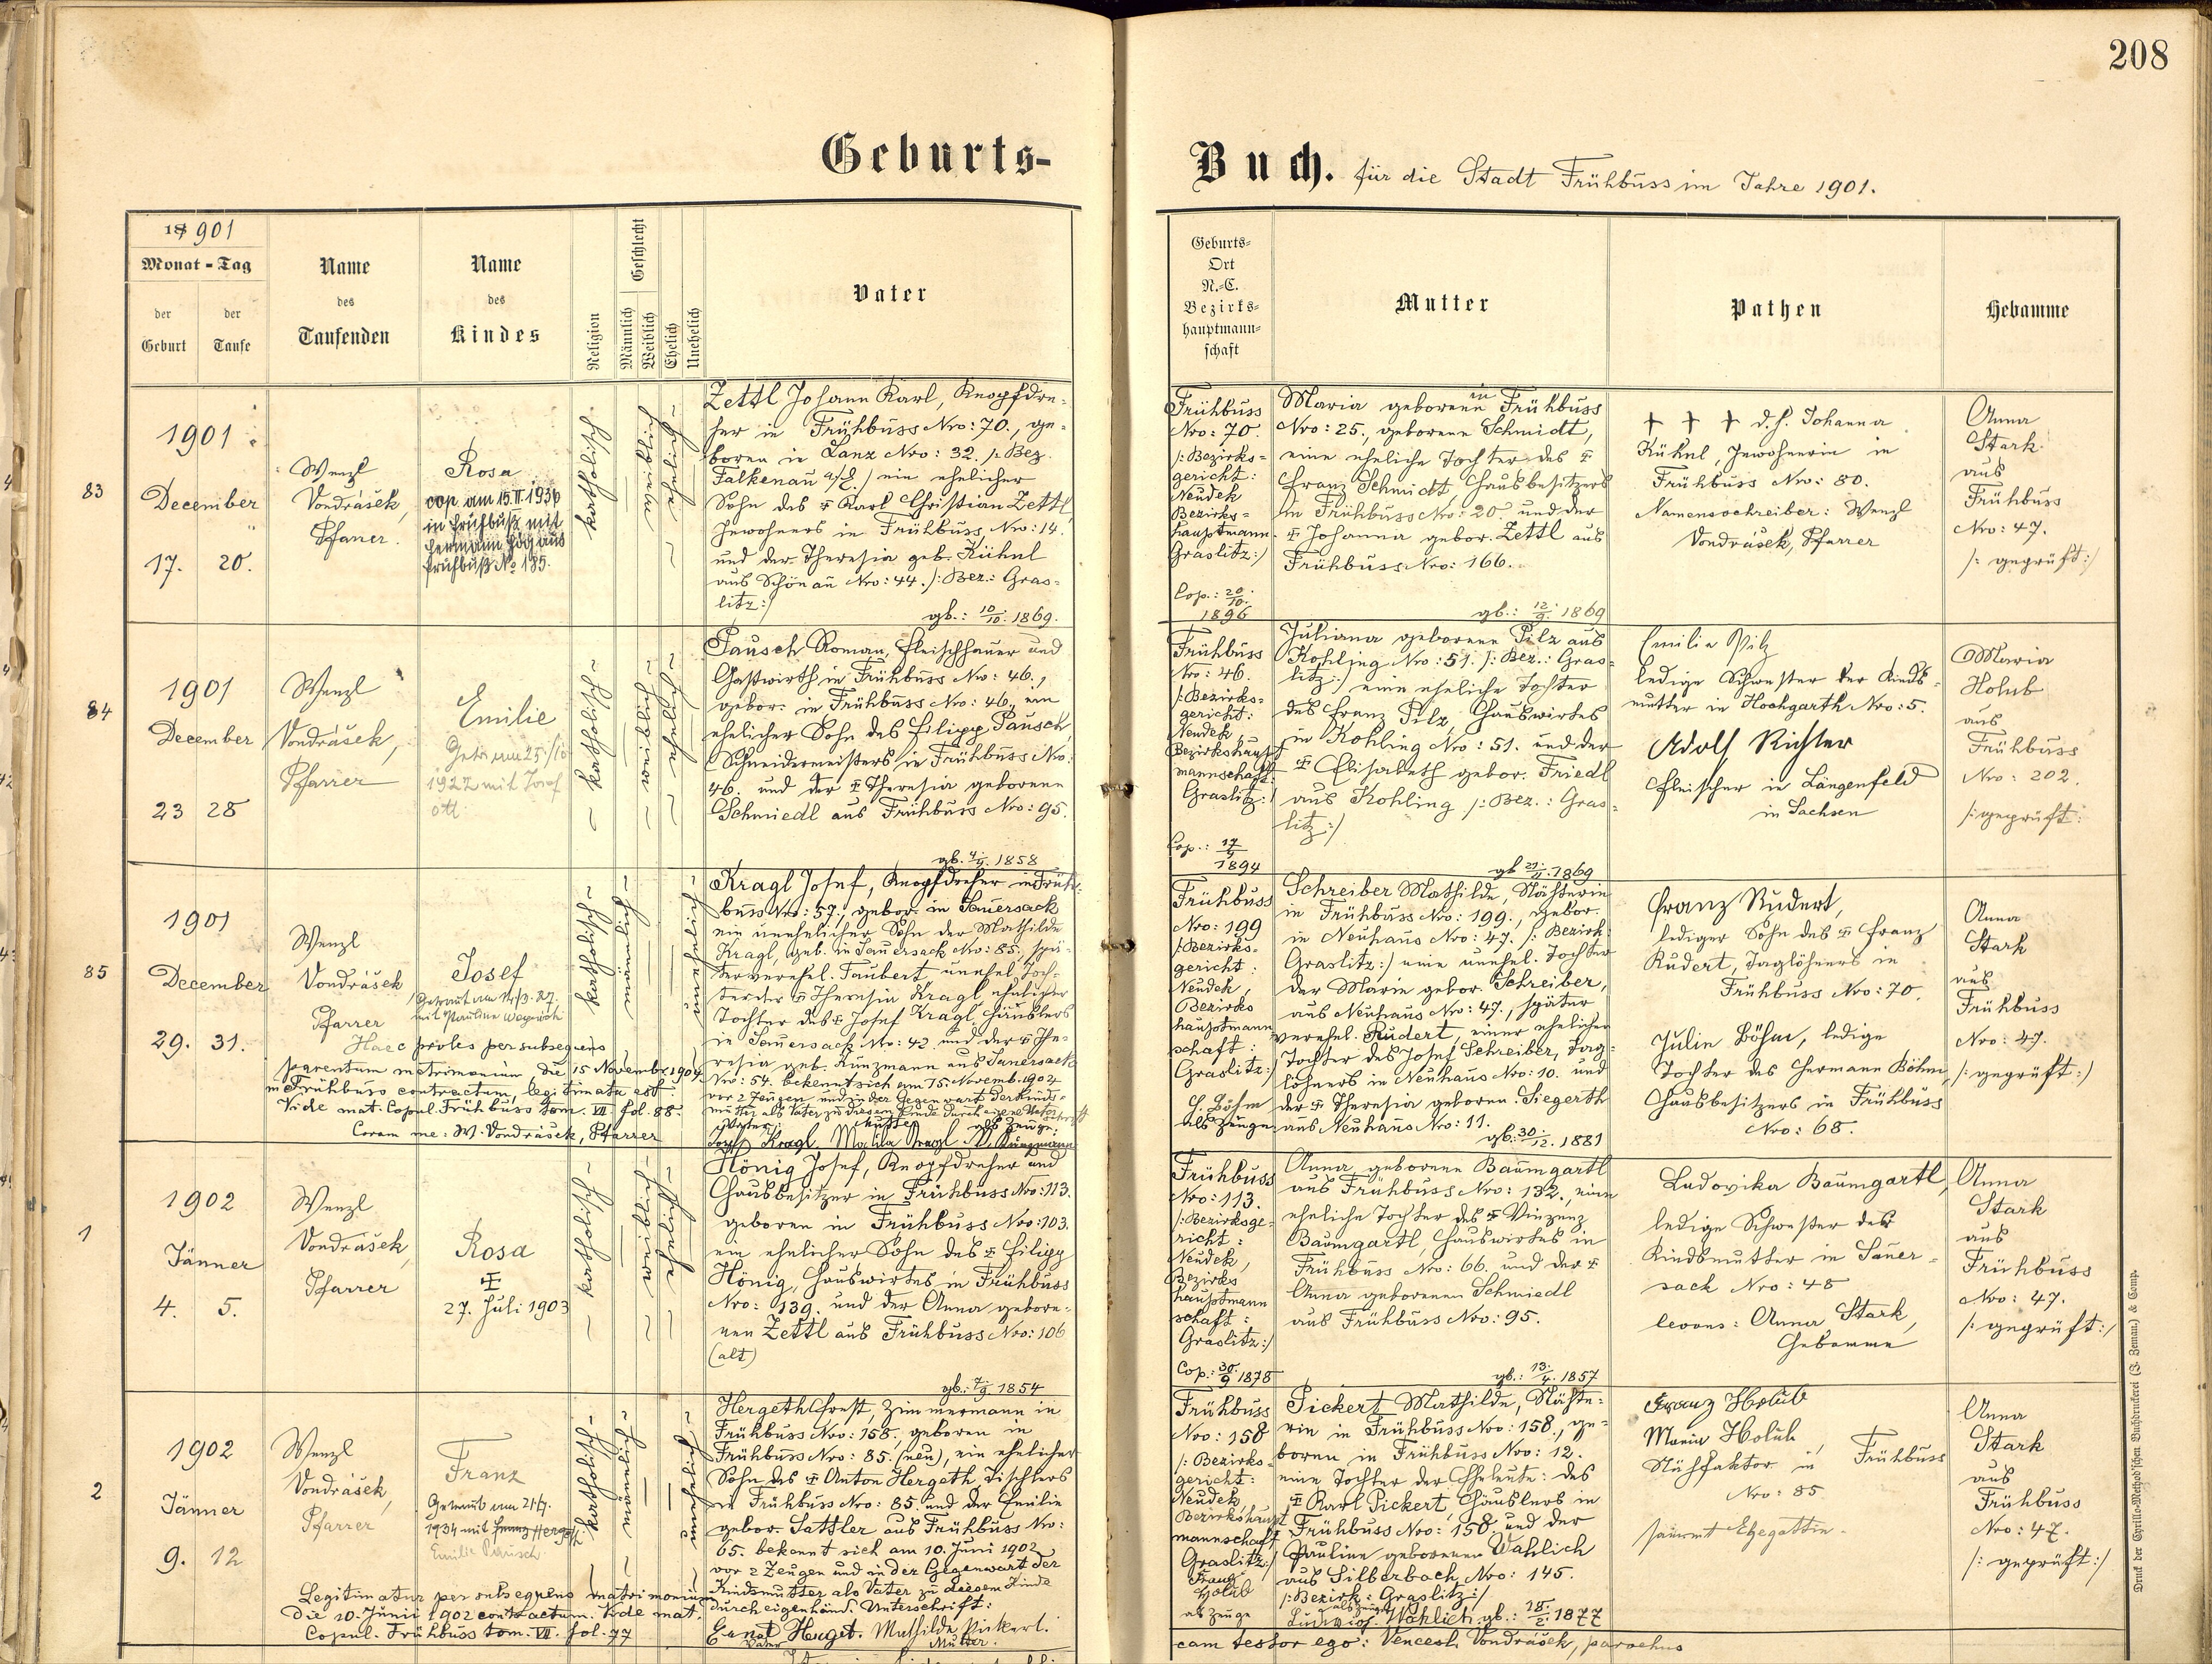 208
Geburts-
Buch. für die Stadt Frühbuss im Jahre 1901.
1901
Monat - Tag
der Geburt
der Taufe
Name des Taufenden
Name des Kindes
Religion
Geschlecht
Männlich
Weiblich
Ehelich
Unehelich
Vater
Geburts-
Ort
N.-C.
Bezirks-
hauptmann-
schaft
Mutter
Pathen
Hebamme
83
1901
December
17. 20.
Wenzl
Vondrásek,
Pfarrer.
Rosa
cop am 15.II.1936
in Frühbuß mit
Hermann
Frühbuß No 185.
katholisch
weiblich
ehelich
Zettl Johann Karl, Knopfdre-
her in Frühbuss Nro: 70., ge-
boren in Lanz Nro: 32. /: Bez.
Falkenau a/E. / ein ehelicher
Sohn des ‡ Karl Christian Zettl,
Inwohners in Frühbuss Nro: 14.
und der Theresia geb. Kühnl
aus Schönau Nro: 44. /: Bez.: Gras-
litz:/
gb.: 10/10. 1869.
Frühbuss
Nro: 70.
/: Bezirks-
gericht:
Neudek
Bezirks-
hauptmann-
Graslitz:/
Cop.: 20/10.
1896
Maria geborene in Frühbuss
Nro: 25., geborene Schmidt,
eine eheliche Tochter des ‡
Franz Schmidt Hausbesitzers
in Frühbuss Nro: 20 und der
‡ Johanna gebor. Zettl aus
Frühbuss Nro: 166.
gb.: 12/9. 1869
† † † d. h. Johanna
Kühnl, Inwohnerin in
Frühbuss Nro: 80.
Namensschreiber: Wenzl
Vondrásek, Pfarrer
Anna
Stark
aus
Frühbuss
Nro: 47.
/: geprüft:/
84
1901
December
23 28
Wenzl
Vondrásek,
Pfarrer
Emilie
Getr. am 25./10
1922 mit Josef
Ott
katholisch
weiblich
ehelich
Pausch Roman, Fleischhauer und
Gastwirth in Frühbuss Nro: 46.,
gebor. in Frühbuss Nro: 46., ein
ehelicher Sohn des Filipp Pausch,
Schneidermeisters in Frühbuss Nro:
46. und der ‡ Theresia geborene
Schmiedl aus Frühbuss Nro: 95.
gb. 4/9. 1858
Frühbuss
Nro: 46.
/: Bezirks-
gericht:
Neudek,
Bezirkshaupt-
mannschaft:
Graslitz:/
Cop.:
1894
Juliana geborene Pilz aus
Kohling Nro: 51. /: Bez.: Gras-
litz:/ eine eheliche Tochter
des Franz Pilz, Hauswirtes
in Kohling Nro: 51. und der
‡ Elisabeth gebor. Friedl
aus Kohling /: Bez.: Gras-
litz:/
gb 21/11. 1869
Emilia Pilz
ledige Schwester der Kinds-
mutter in Hochgarth Nro: 5.
Adolf Richter
Fleischer in Längenfeld
in Sachsen
Maria
Holub
aus
Frühbuss
Nro: 202.
/: geprüft:
85
1901
December
29. 31.
Wenzl
Vondrásek
Pfarrer
Josef
Getraut am 27.
mit Pauline
katholisch
männlich
unehelich
Haec proles per subsequens
parentum matrimonium die 15 Novembr. 1904
in Frühbuss contractum, legitimata est.
Vide mat. Copul. Frühbuss tom. VII. fol. 88.
Coram me: W. Vondrásek, Pfarrer
Kragl Josef, Knopfdreher in Früh-
buss Nro: 57., gebor. in Sauersack
ein unehelicher Sohn der Mathilde
Kragl, geb. in Sauersack Nro: 85., spä-
ter verehel. Taubert, unehel. Toch-
ter der ‡ Theresia Kragl, ehelicher
Tochter des ‡ Josef Kragl, Häuslers
in Sauersack Nro: 42. und der ‡ The-
resia geb. Kunzmann aus Sauersack
Nro: 54. bekennt sich am 15. Novemb. 1904
vor 2 Zeugen und in der Gegenwart der Kinds-
mutter als Vater zu diesem Kinde durch eigene Unterschrift
Vater: Mutter als Zeuge:
Josef Kragl Kragl Kunzmann
Frühbuss
Nro: 199
/: Bezirks-
gericht:
Neudek,
Bezirks
hauptmann
schaft:
Graslitz:/
Böhm
als Zeuge
Schreiber Mathilde, Nähterin
in Frühbuss Nro: 199., gebor.
in Neuhaus Nro: 47. /: Bezirk:
Graslitz:/ eine unehel. Tochter
der Marie gebor. Schreiber,
aus Neuhaus Nro: 47., später
verehel. Rudert, einer ehelichen
Tochter des Josef Schreiber, Tag-
löhners in Neuhaus Nro: 10. und
der ‡ Theresia geboren. Siegerth
aus Neuhaus Nro: 11.
gb: 30/12. 1881
Franz Rudert,
lediger Sohn des ‡ Franz
Rudert, Taglöhners in
Frühbuss Nro: 70.
Julie Böhm, ledige
Tochter des Hermann Böhm,
Hausbesitzers in Frühbuss
Nro: 68.
Anna
Stark
aus
Frühbuss
Nro: 47.
/: geprüft:/
1
1902
Jänner
4. 5.
Wenzl
Vondrásek,
Pfarrer
Rosa
‡
27. Juli 1903
katholisch
weiblich
ehelich
Hönig Josef, Knopfdreher und
Hausbesitzer in Frühbuss Nro: 113.
geboren in Frühbuss Nro: 103.
ein ehelicher Sohn des ‡ Filipp
Hönig, Hauswirtes in Frühbuss
Nro: 139. und der Anna gebore-
nen Zettl aus Frühbuss Nro: 106
(alt)
gb.: 7/9. 1854
Frühbuss
Nro: 113.
/: Bezirksge-
richt:
Neudek,
Bezirks
hauptmann
schaft:
Graslitz:/
Cop.: 30/9. 1878
Anna geborene Baumgartl
aus Frühbuss Nro: 132., eine
eheliche Tochter des ‡ Vinzenz
Baumgartl, Hauswirtes in
Frühbuss Nro: 66. und der ‡
Anna geborenen Schmiedl
aus Frühbuss Nro: 95.
gb.: 13/4. 1857
Ludovika Baumgartl,
ledige Schwester der
Kindsmutter in Sauer-
sack Nro: 48
levans: Anna Stark,
Hebamme
Anna
Stark
aus
Frühbuss
Nro: 47.
/: geprüft:/
2
1902
Jänner
9. 12
Wenzl
Vondrásek,
Pfarrer
Franz
Getraut am
1934 mit
Emilie Pausch
katholisch
männlich
unehelich
Legitimatur per subsequens matrimonium
die 10. Junii 1902 contractum. Vide mat.
Copul. Frühbuss tom. VII. fol. 77
Hergeth Ernst, Zimmermann in
Frühbuss Nro: 158. geboren in
Frühbuss Nro: 85. (neu), ein ehelicher
Sohn des ‡ Anton Hergeth, Tischlers
in Frühbuss Nro: 85. und der Emilie
gebor. Sattler aus Frühbuss Nro:
65. bekennt sich am 10. Juni 1902
vor 2 Zeugen und in der Gegenwart der
Kindsmutter als Vater zu diesem Kinde
durch eigenhänd. Unterschrift:
Ernst Herget. Mathilde Pickert.
Vater Mutter.
Frühbuss
Nro: 158
/: Bezirks-
gericht:
Neudek,
Bezirkshaupt
mannschaft
Graslitz:/
Franz
Holub
als Zeuge
Pickert Mathilde, Nähte-
rin in Frühbuss Nro: 158., ge-
boren in Frühbuss Nro: 12.
eine Tochter der Eheleute: des
‡ Karl Pickert, Häuslers in
Frühbuss Nro: 158. und der
Pauline geborenen Wahlich
aus Silberbach Nro: 145.
/: Bezirk: Graslitz:/
als Zeuge
Wohlich gb.: 18/2. 1877
Franz Holub
Maria Holub,
Nähfaktor in Frühbuss
Nro: 85
sammt Ehegattin.
Anna
Stark
aus
Frühbuss
Nro: 47.
/: geprüft:/
eam testor ego: Vencesl. Vondrásek, parochus
Druck der Cyrillo-Method'schen Buchdruckerei (J. Zeman) & Comp.